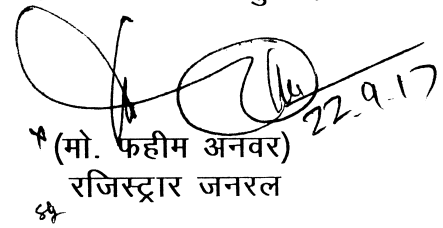 22.9.17
(मो. फहीम अनवर)
रजिस्ट्रार जनरल